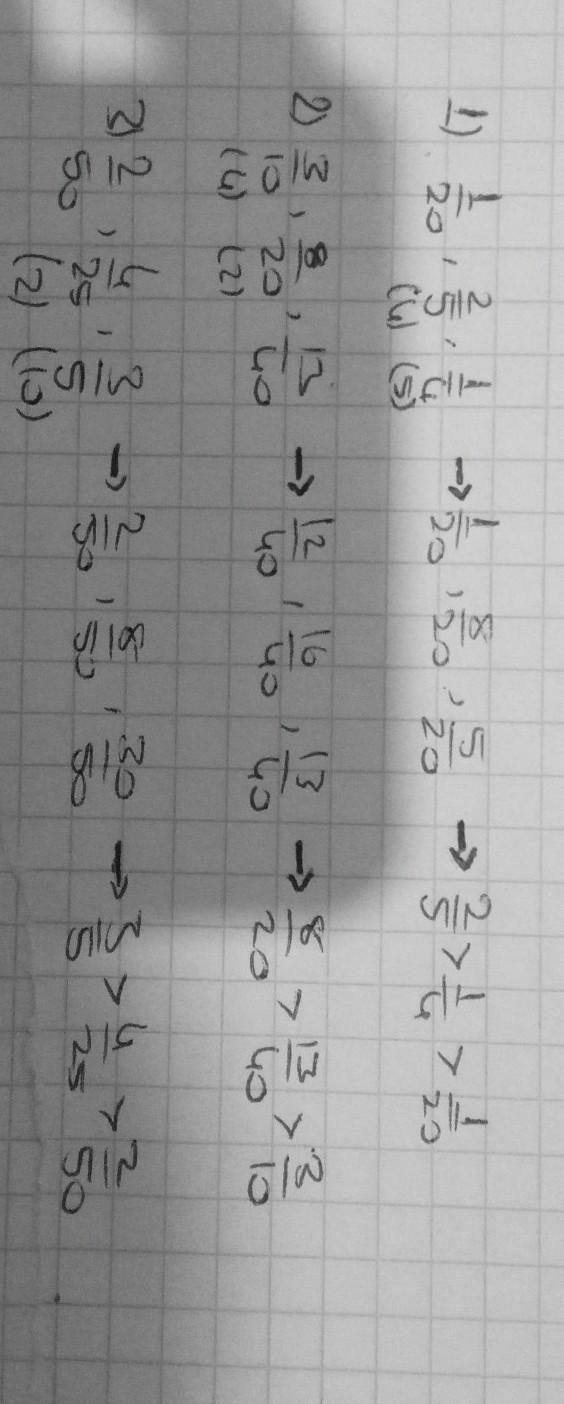 1) 1/20 , 2/5 (4) , 1/4 (5) → 1/20 , 8/20 , 5/20 → 2/5 > 1/4 > 1/20
2) 3/10 (4) , 8/20 (2) , 13/40 → 12/40 , 16/40 , 13/40 → 8/20 > 13/40 > 3/10
3) 2/50 , 4/25 (2) , 3/5 (10) → 2/50 , 8/50 , 30/50 → 3/5 > 4/25 > 2/50